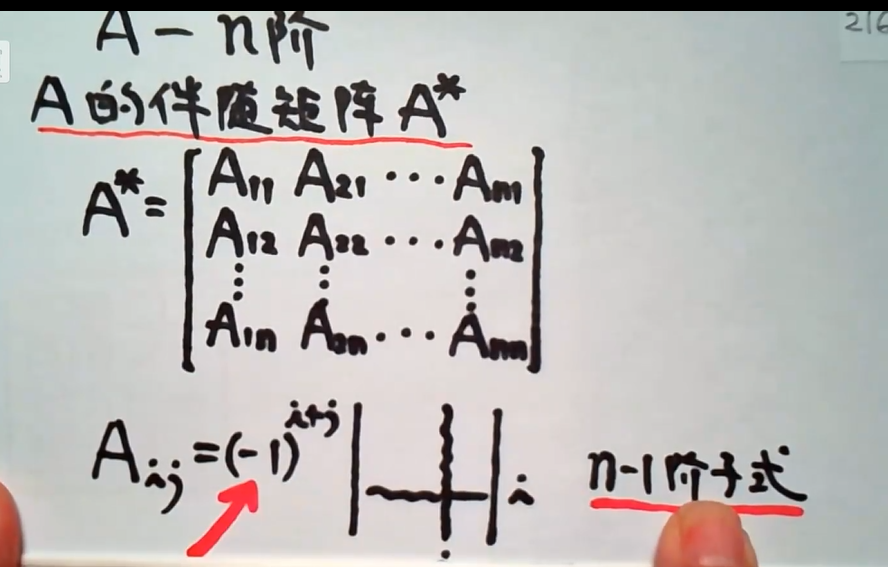 A - n阶
216
A的伴随矩阵A*
A* = [A₁₁ A₂₁ ··· Aₙ₁
A₁₂ A₂₂ ··· Aₙ₂
⋮ ⋮ ⋮
A₁ₙ A₂ₙ ··· Aₙₙ]
Aᵢⱼ = (-1)ⁱ⁺ʲ | | i n-1阶子式